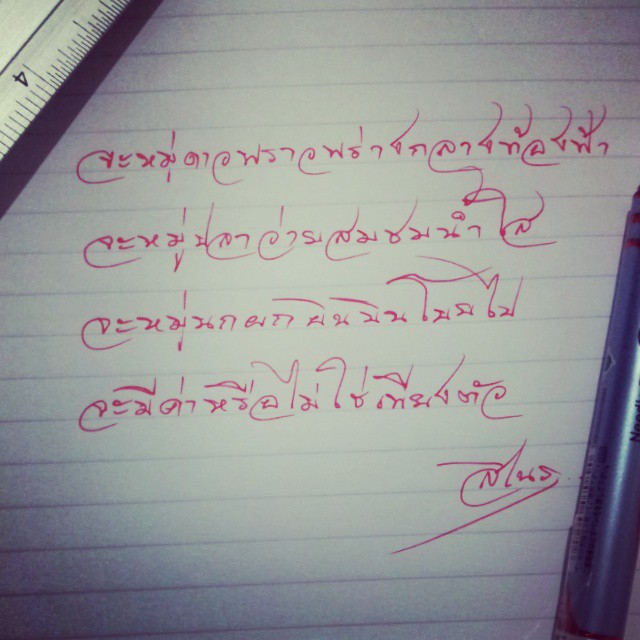 4
จะหมู่ดาวพราวพร่างกลางท้องฟ้า
จะหมู่ปลาว่ายสมชมน้ำใส
จะหมู่นกผกผินบินโบยไป
จะมีค่าหรือไม่ใช่เพียงตัว